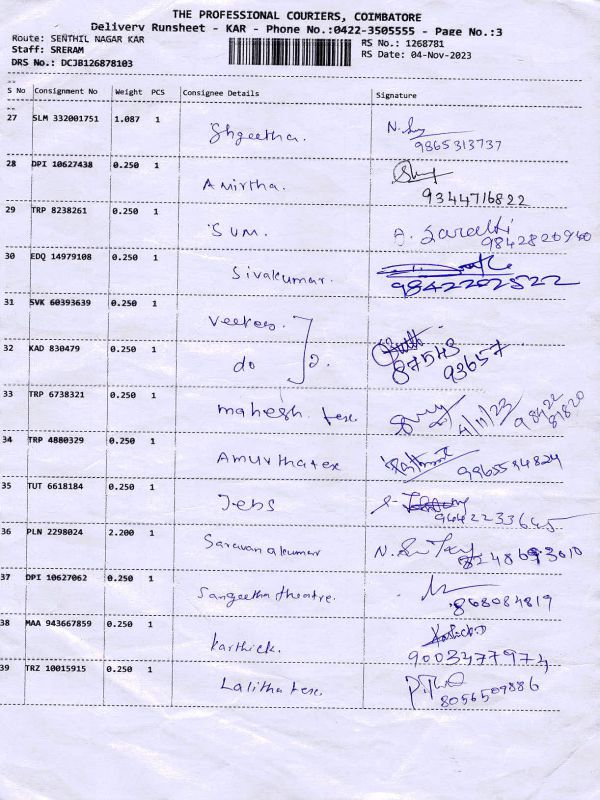 THE PROFESSIONAL COURIERS, COIMBATORE
Delivery Runsheet - KAR - Phone No.:0422-3505555 - Page No.:3
Route: SENTHIL NAGAR KAR
RS No.: 1268781
Staff: SRERAM
RS Date: 04-Nov-2023
DRS No.: DCJB126878103
S No Consignment No Weight PCS Consignee Details Signature
27 SLM 332001751 1.087 1 Shgeetha.
9865313737
28 DPI 10627438 0.250 1 Amirtha.
9344716822
29 TRP 8238261 0.250 1 Sum.
9842820940
30 EDQ 14979108 0.250 1 Sivakumar.
9842202522
31 SVK 60393639 0.250 1
32 KAD 830479 0.250 1 do 2.
87543
93657
33 TRP 6738321 0.250 1 mahesh. tex.
4/11/23 98422 81820
34 TRP 4880329 0.250 1 Amurthatex
35 TUT 6618184 0.250 1 Jebs
36 PLN 2298024 2.200 1 Saravanakumar
37 DPI 10627062 0.250 1 Sangeetha theatre.
868084819
38 MAA 943667859 0.250 1 Karthick.
9003477974
39 TRZ 10015915 0.250 1 Lalitha tex.
8056509886